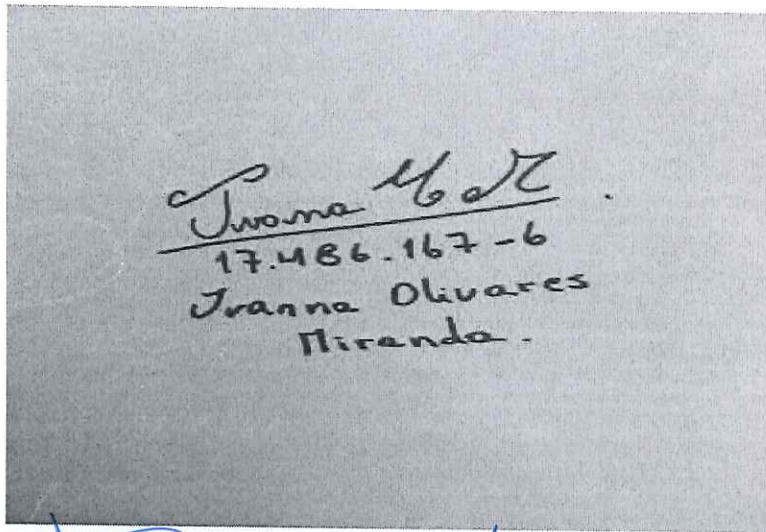 17.486.167-6
Ivanna Olivares
Miranda.